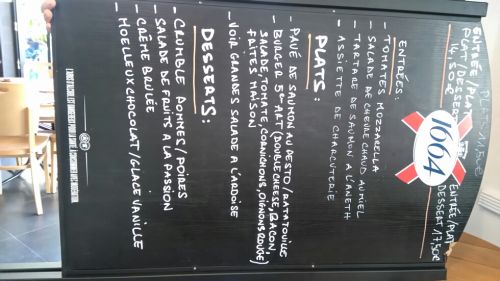 PLAT 11,50€
ENTRÉE/PLAT
PLAT/DESSERT
14,50€
1664
ENTRÉE/PLAT
DESSERT/17,50€
ENTRÉES:
- TOMATES MOZZARELLA
- SALADE DE CHEVRE CHAUD AU MIEL
- TARTARE DE SAUMON A L'ANETH
- ASSIETTE DE CHARCUTERIE
PLATS:
- PAVÉ DE SAUMON AU PESTO/RATATOUILLE
- BURGER 5e ART (DOUBLE CHEESE, BACON,
SALADE, TOMATE, CORNICHONS, OIGNONS ROUGE)
FRITES MAISON
- VOIR GRANDES SALADE A L'ARDOISE
DESSERTS:
- CRUMBLE POMMES/POIRES
- SALADE DE FRUITS A LA PASSION
- CRÈME BRULÉE
- MOELLEUX CHOCOLAT/GLACE VANILLE
L'ABUS D'ALCOOL EST DANGEREUX POUR LA SANTÉ. À CONSOMMER AVEC MODÉRATION.